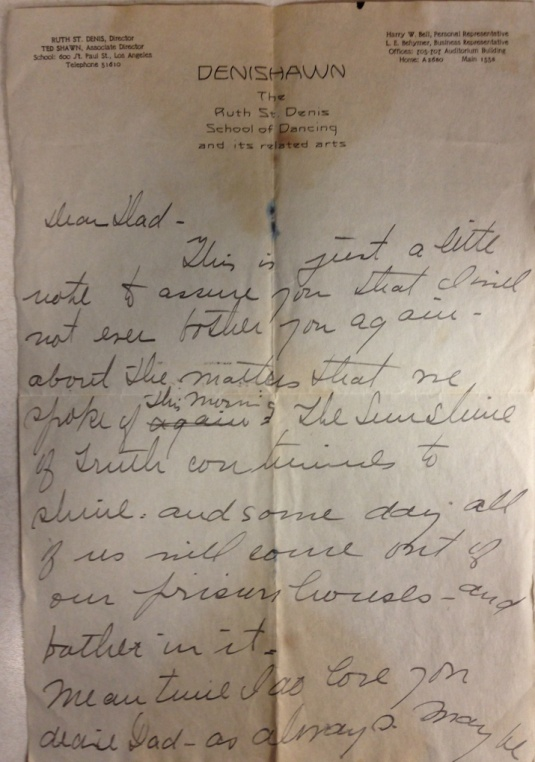 RUTH ST. DENIS, Director
TED SHAWN, Associate Director
School: 600 St. Paul St., Los Angeles
Telephone 51610
Harry W. Bell, Personal Representative
L. E. Behymer, Business Representative
Offices: 705-707 Auditorium Building
Home: A2860 Main 1556
DENISHAWN
The
Ruth St. Denis
School of Dancing
and its related arts
Dear Dad -
This is just a little
note to assure you that I will
not ever bother you again -
about the matters that we
spoke of again this morning. The Sunshine
of Truth continues to
shine. and some day all
of us will come out of
our prison houses - and
bathe in it.
Meantime I do love you
dear Dad - as always. May be